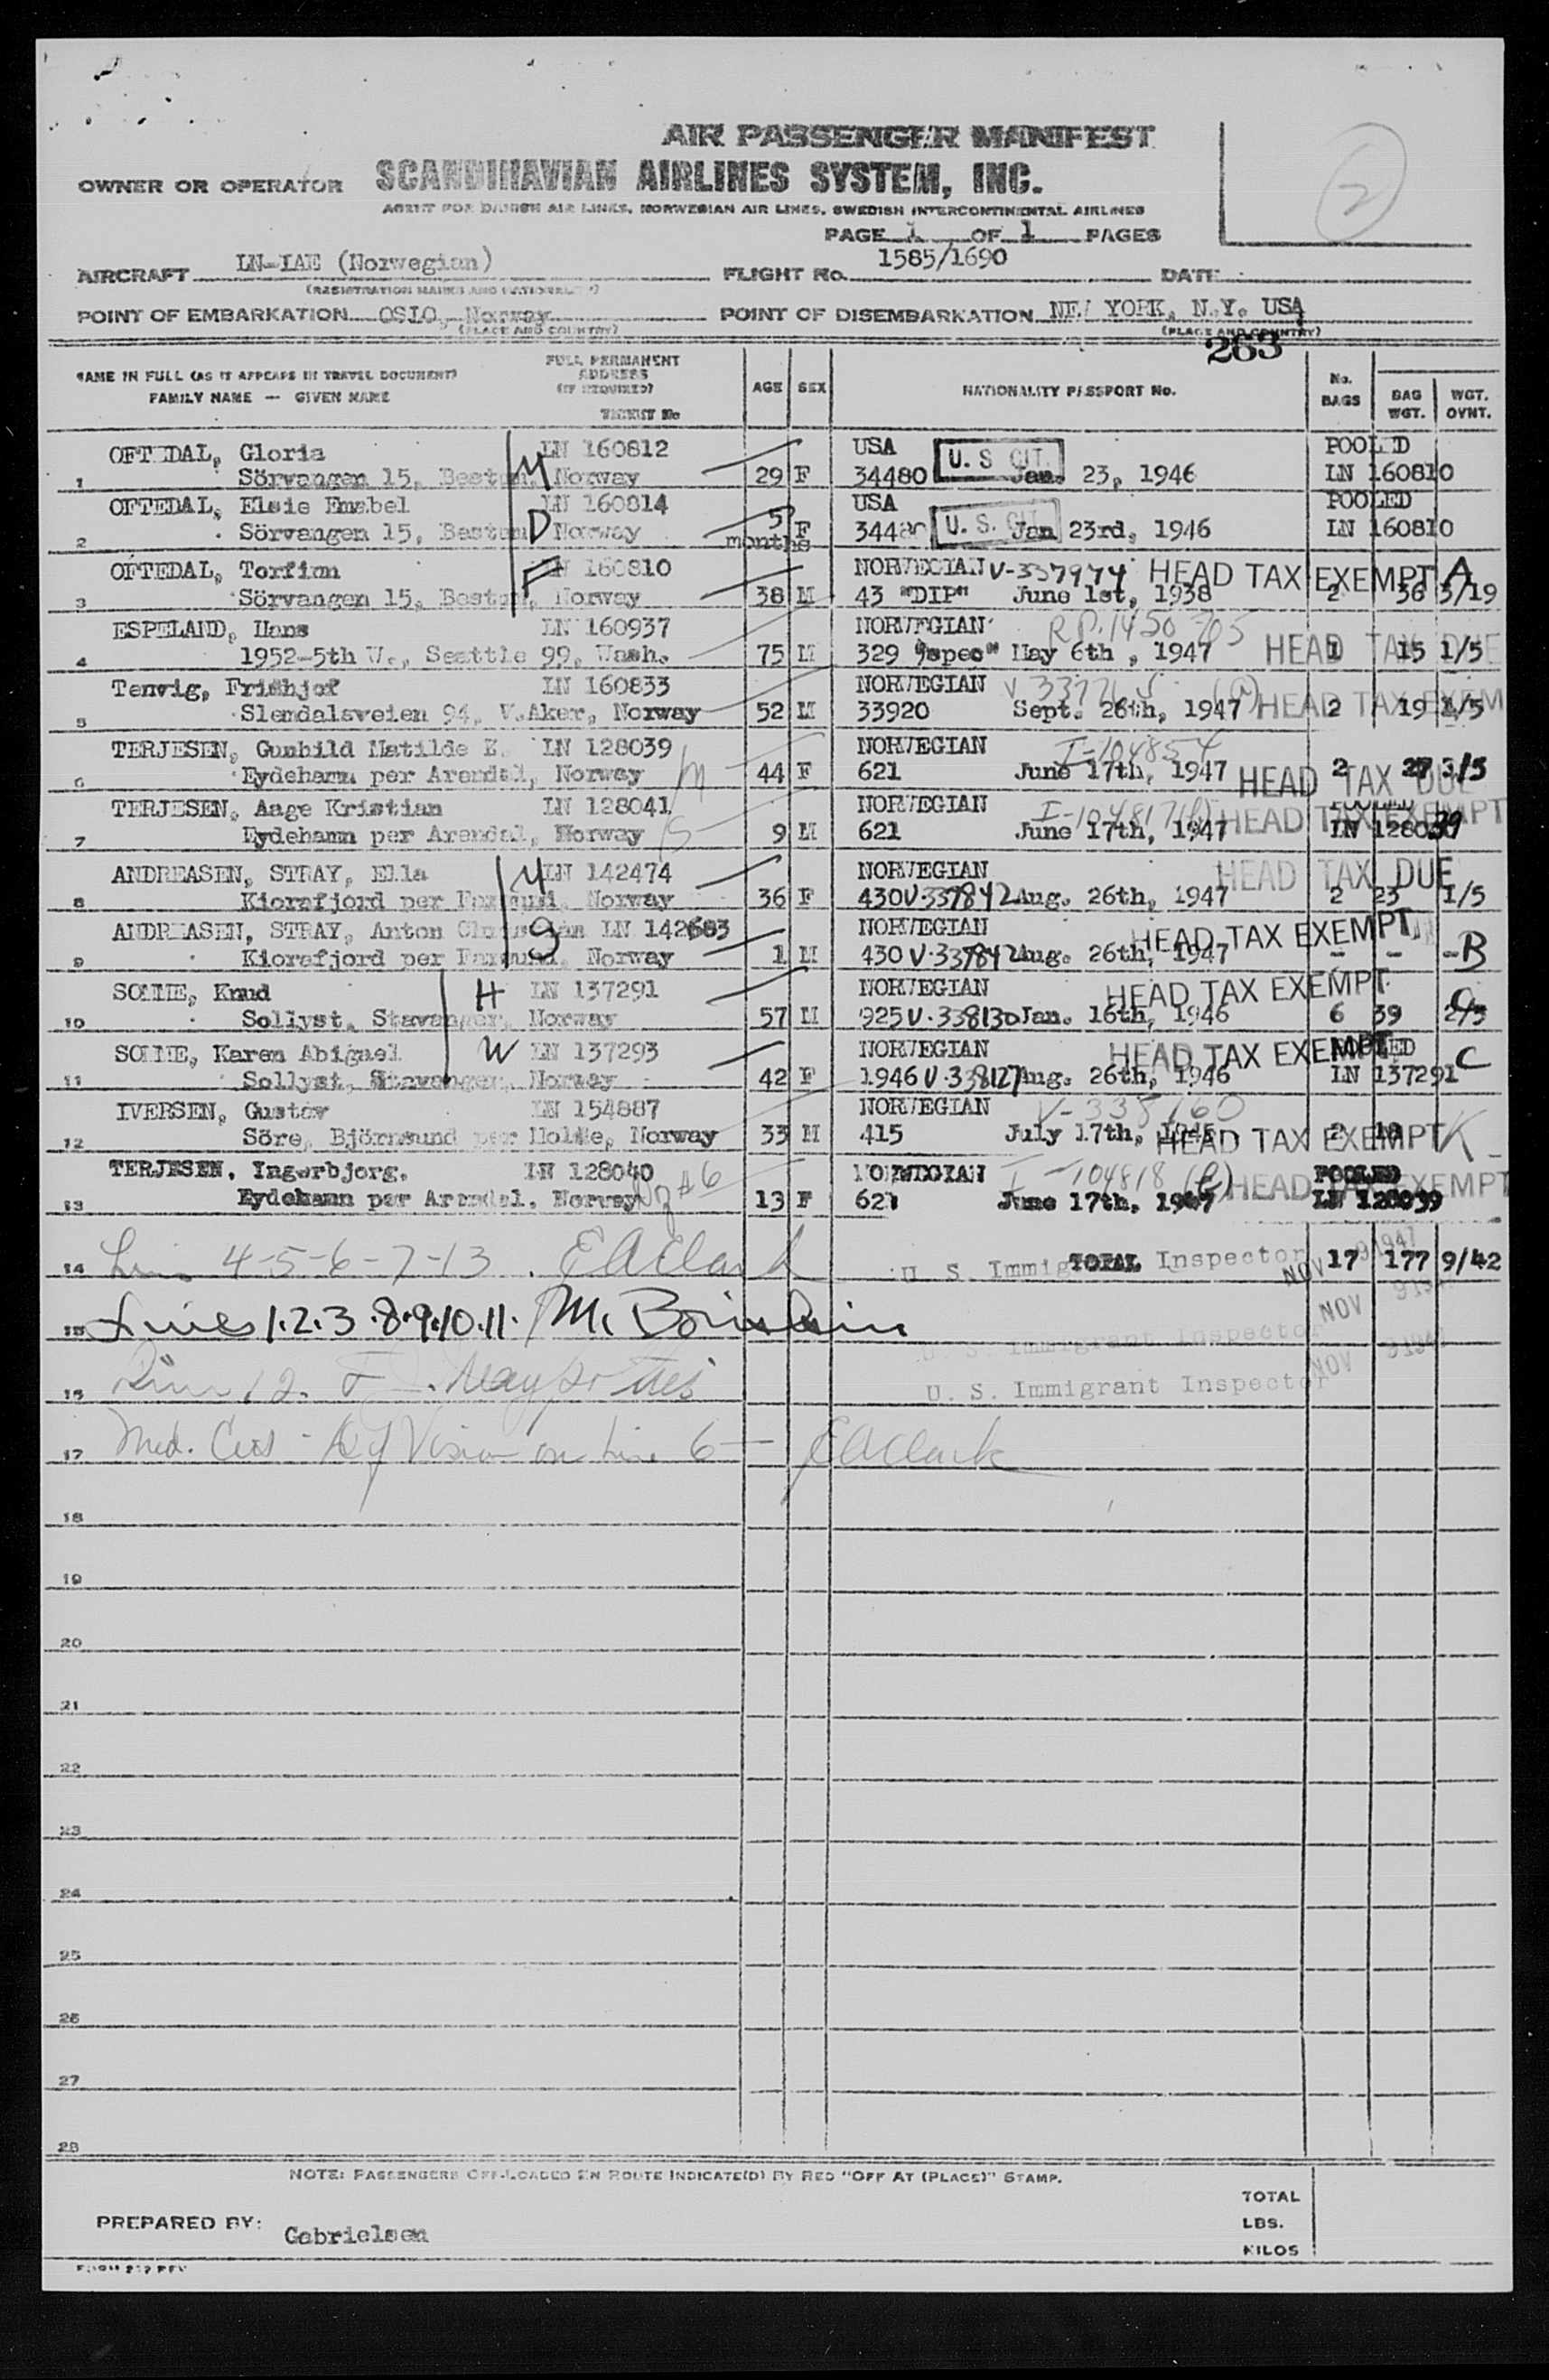 2
AIR PASSENGER MANIFEST
OWNER OR OPERATOR SCANDINAVIAN AIRLINES SYSTEM, INC.
AGENT FOR DANISH AIR LINES, NORWEGIAN AIR LINES, SWEDISH INTERCONTINENTAL AIRLINES
PAGE 1 OF 1 PAGES
AIRCRAFT LN-IAE (Norwegian) FLIGHT No. 1585/1690 DATE
(REGISTRATION MARKS AND NATIONALITY)
POINT OF EMBARKATION OSLO, Norway POINT OF DISEMBARKATION NEW YORK, N.Y. USA
(PLACE AND COUNTRY) (PLACE AND COUNTRY)
263
NAME IN FULL (AS IT APPEARS IN TRAVEL DOCUMENT) FULL PERMANENT ADDRESS (IF REQUIRED) AGE SEX NATIONALITY PASSPORT No. No. BAGS BAG WGT. WGT. OVNT.
FAMILY NAME — GIVEN NAME TICKET No
OFTEDAL, Gloria LN 160812 USA U. S CIT. POOLED
1 Sörvangen 15, Bestum, Norway M 29 F 34480 Jan. 23, 1946 LN 160810
OFTEDAL, Elsie Emabel LN 160814 USA U. S. CIT. POOLED
2 Sörvangen 15, Bestum, Norway D 5 months F 34480 Jan 23rd, 1946 LN 160810
OFTEDAL, Torfinn LN 160810 NORWEGIAN V-337974 HEAD TAX EXEMPT A
3 Sörvangen 15, Bestum, Norway F 38 M 43 "DIP" June 1st, 1938 2 36 3/19
ESPELAND, Hans LN 160937 NORWEGIAN R.P. 1450705
4 1952-5th W., Seattle 99, Wash. 75 M 329 "spec" May 6th , 1947 HEAD TAX DUE 1 15 1/5
Tenvig, Fridhjof LN 160833 NORWEGIAN
5 Slemdalsveien 94, V.Aker, Norway 52 M 33920 Sept. 26th, 1947 HEAD TAX EXEM 2 19 1/5
TERJESEN, Gunhild Matilde E. LN 128039 NORWEGIAN I-104854
6 Eydehamn per Arendal, Norway M 44 F 621 June 17th, 1947 HEAD TAX DUE 2 27 3/5
TERJESEN, Aage Kristian LN 128041 NORWEGIAN I-104817 HEAD TAX EXEMPT POOLED
7 Eydehamn per Arendal, Norway S 9 M 621 June 17th, 1947 LN 128039
ANDREASEN, STRAY, Ella LN 142474 NORWEGIAN HEAD TAX DUE
8 Kiorefjord per Farsund, Norway M 36 F 430 V-337842 Aug. 26th, 1947 2 23 1/5
ANDREASEN, STRAY, Anton LN 142683 NORWEGIAN HEAD TAX EXEMPT
9 Kiorefjord per Farsund, Norway S 1 M 430 V-337842 Aug. 26th, 1947 - - - B
SOMME, Knud H LN 137291 NORWEGIAN HEAD TAX EXEMPT
10 Sollyst, Stavanger, Norway 57 M 925 V-338130 Jan. 16th, 1946 6 39 2/5 C
SOMME, Karen Abigael W LN 137293 NORWEGIAN HEAD TAX EXEMPT POOLED
11 Sollyst, Stavanger, Norway 42 F 1946 V-338127 Aug. 26th, 1946 LN 137291 C
IVERSEN, Gustav LN 154887 NORWEGIAN V-338160
12 Söre, Björnsund per Molde, Norway 33 M 415 July 17th, HEAD TAX EXEMPT 2 18 K
TERJESEN, Ingerbjorg. LN 128040 NORWEGIAN I-104818 POOLED
13 Eydehamn per Arendal, Norway 13 F 621 June 17th, 1947 HEAD TAX EXEMPT LN 128039
14 Lines 4-5-6-7-13. EAClark U. S. Immigrant Inspector TOTAL NOV 9 1947 17 177 9/42
15 Lines 1.2.3.8.9.10.11. U. S. Immigrant Inspector NOV 9 1947
16 Line 12. U. S. Immigrant Inspector NOV 9 1947
17 Med. Cert Vision on Line 6 — EAClark
18
19
20
21
22
23
24
25
26
27
28
NOTE: PASSENGERS OFF-LOADED EN ROUTE INDICATE(D) BY RED "OFF AT (PLACE)" STAMP.
PREPARED BY: Gabrielsen
TOTAL
LBS.
KILOS